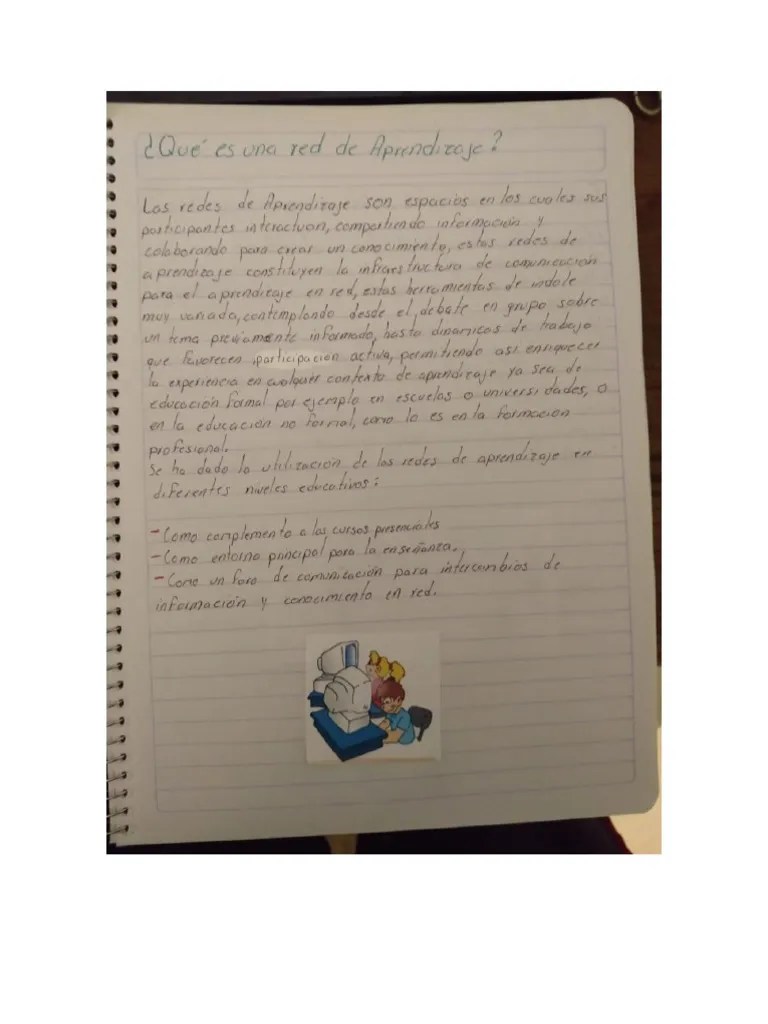 ¿Qué es una red de Aprendizaje?
Las redes de Aprendizaje son espacios en los cuales sus
participantes interactuan, compartiendo información y
colaborando para crear un conocimiento, estas redes de
aprendizaje constituyen la infraestructura de comunicación
para el aprendizaje en red, estas herramientas de indole
muy variada, contemplando desde el debate en grupo sobre
un tema previamente informado, hasta dinamicas de trabajo
que favorecen participación activa, permitiendo asi enriquecer
la experiencia en cualquier contexto de aprendizaje ya sea de
educación formal por ejemplo en escuelas o universidades, o
en la educación no formal, como lo es en la formacion
profesional.
Se ha dado la utilización de las redes de aprendizaje en
diferentes niveles educativos:
- Como complemento a los cursos presenciales
- Como entorno principal para la enseñanza.
- Como un foro de comunicación para intercambios de
información y conocimiento en red.